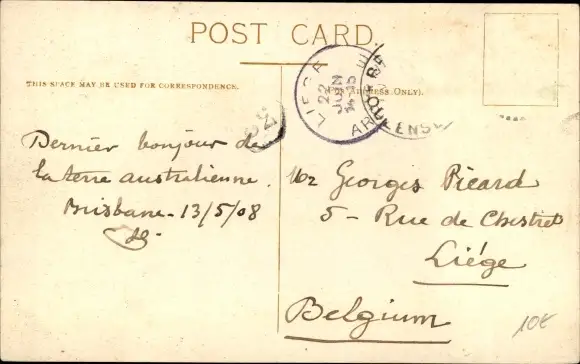 POST CARD.
THIS SPACE MAY BE USED FOR CORRESPONDENCE.
(ADDRESS ONLY).
22
JUIN
QUEENSW
Dernier bonjour de
la terre australienne.
Brisbane - 13/5/08
Mr Georges Picard
5 - Rue de Chestret
Liége
Belgium
10€